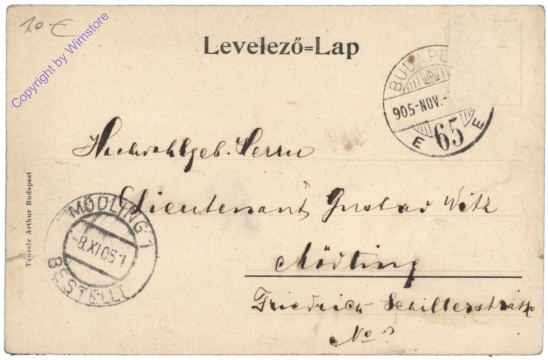 10.-€
Copyright by Wimstore
Levelező=Lap
BUDAPE
905-NOV.-
E 65 E
Hochwohlgeb. Herrn
Lieutenant Gustav Witz
Mödling
Friedrich Schillerstraße
No
Taussig Arthur Budapest
MÖDLING 1
-8.XI.05-1
BESTELLT